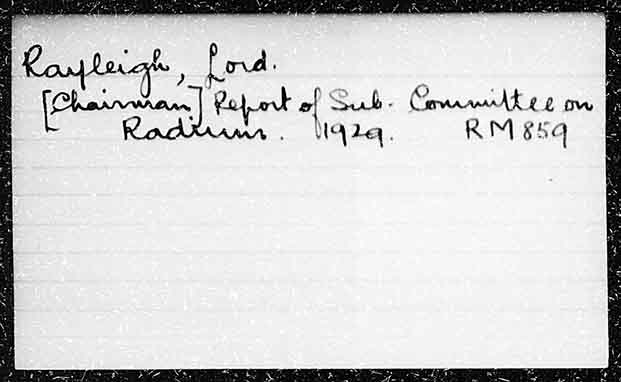 Rayleigh, Lord.
[Chairman] Report of Sub-Committee on
Radium. 1929. RM859